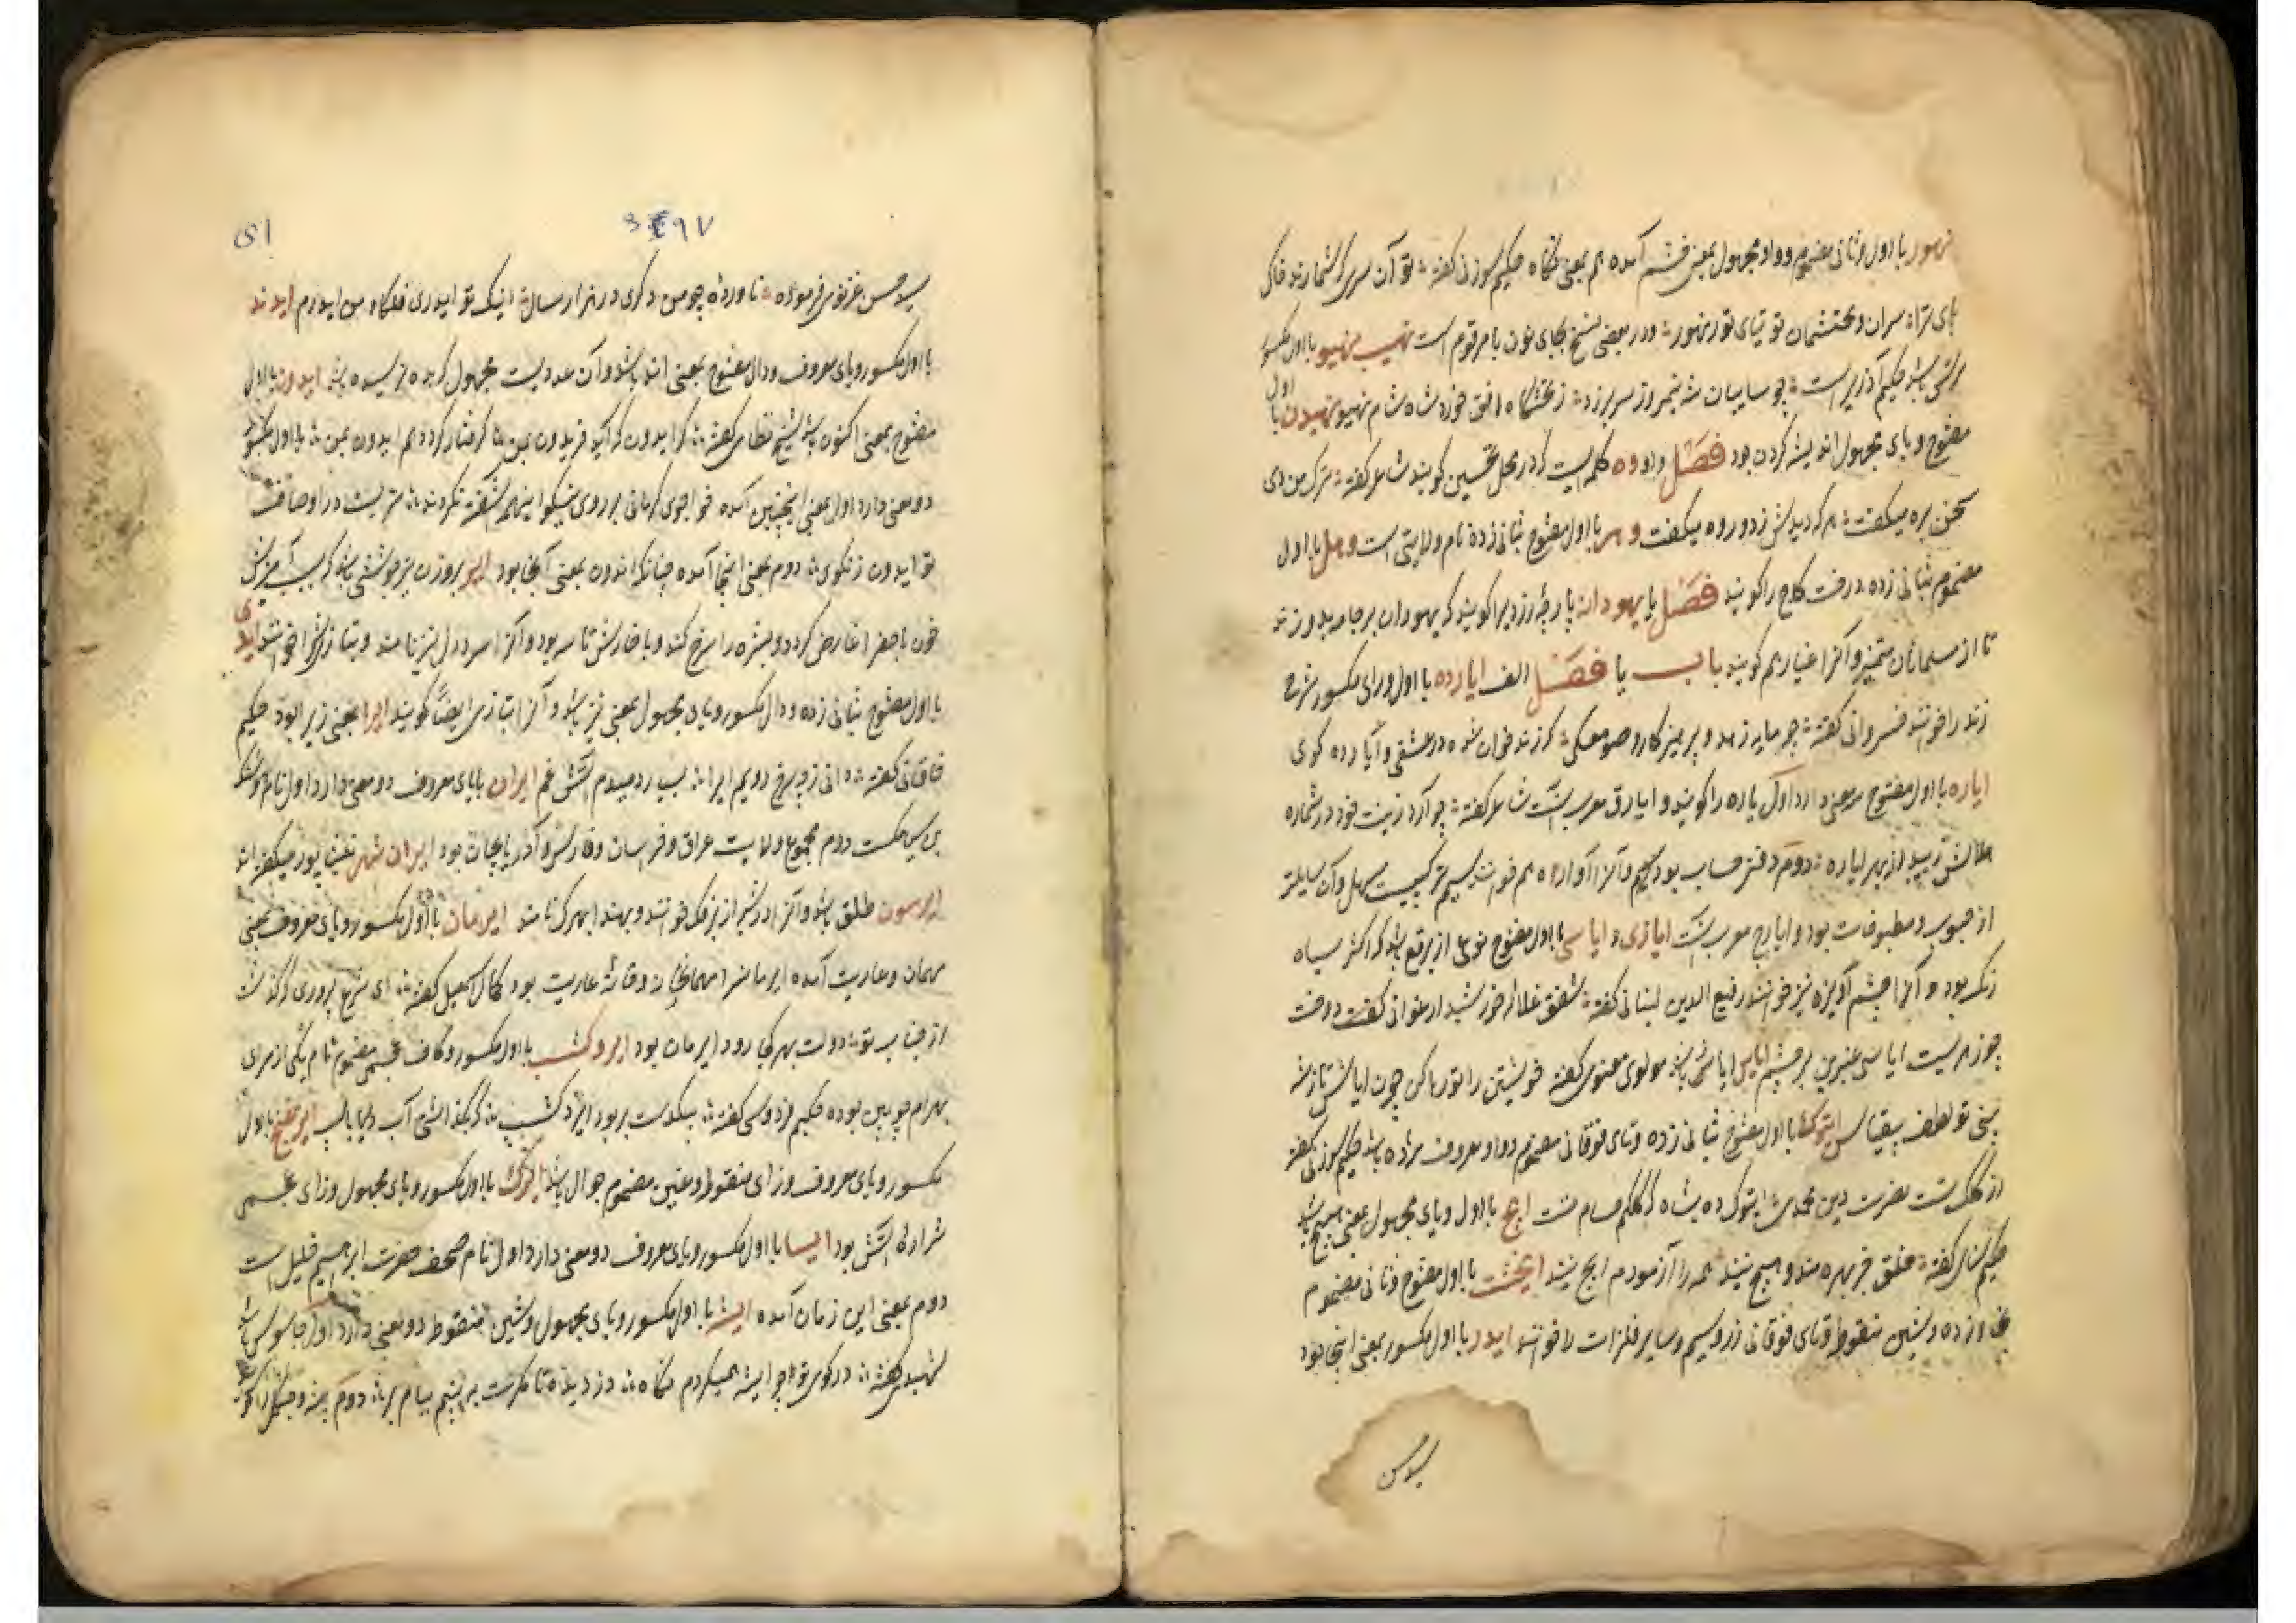 نهور با اول و ثانی مضموم و واو مجهول بمعنی خشم آمده هم بمعنی نگاه حکیم سوزنی گفته تو آن سری که شمارند خاک
پای ترا سران و محتشمان توتیای نور نهور و در بعضی نسخ بجای نون با مرقوم است نهیب نهیو با اول مکسور
باشد حکیم آذری راست چو سایبان شه نیمروز سر بر زد ز تختگاه افق خورد شاه شام نهیو نهیدن با اول
مفتوح و یای مجهول اندیشه کردن بود فصل واو وه کلمه ایست که در محل تحسین گویند شاعر گفته ترک من دی
سخن بره میگفت هر که دیدش زدور وه میگفت وهر با اول مفتوح بثانی زده نام ولایتی است وهل با اول
مضموم بثانی زده درخت کاج را گویند فصل یا یهودانه پارچهٔ زردیرا گویند که یهودان بر جامه بدوزند
تا از مسلمانان متمیز و آنرا غیار هم گویند باب یا فصل الف ایارده با اول و رای مکسور شرح
زند را خوانند خسروانی گفته چه مایه زاهد و پرهیزکار و صومعگی که زند خوان شده در عشقش و ایارده گوی
ایاره با اول مفتوح معنی دارد اول یاره را گویند و ایارق معرب آنست شاعر گفته چو آرد زینت خود در شماره
از بهر ایاره دوم دفتر حساب بود و آنرا آواره هم خوانند سیم ترکیبیست مسهل و آن
از حبوب و مطبوخات بود و ایارج معرب آنست ایازی و ایاسی با اول مفتوح نوعی از برقع باشد که اکثر سیاه
رنگ بود و آنرا چشم آویزه نیز خوانند رفیع الدین لنبانی گفته شفق غلاله خورشید ارغوانی گفت دوخت
ایاسی عنبرین بر چشم ایاس ایاس باشد مولوی معنوی گفته خویشتن را تو رها کن چون ایاس تا ز شه
بینی تو لطف بیقیاس ایتوک با اول مفتوح بثانی زده و تای فوقانی مضموم و واو معروف مژده باشد حکیم سوزنی گفته
از کلک تست نصرت دین محمدی ایتوک ده بشاه که کلکم حسام تست ایچ با اول و یای مجهول بمعنی هیچ باشد
حکیم سنائی گفته خلق جز بهره مند و هیچ نیند همه را آزمودم ایچ نیند ایخشت با اول مفتوح و ثانی مضموم
بخا زده و شین منقوط و تای فوقانی زر و سیم و سایر فلزات را خوانند ایدر با اول مکسور بمعنی اینجا بود
سید حسن
ای
سید حسن غزنوی فرموده ناورده چو من ذکری در هزار سال اینک تو ایدری فلکا و من ایدرم ایدند
با اول مکسور و یای معروف و دال مفتوح بمعنی اند باشد و آن عددیست مجهول که به ده نرسیده باشد ایدون با اول
مفتوح بمعنی اکنون باشد شیخ نظامی گفته گر ایدون که آید فریدون بمن گرفتار گردد هم ایدون بمن با اول مکسور
دو معنی دارد اول بمعنی اینچنین آمده خواجوی کرمانی بر روی نیکو اینهمه آشفته نگردند سریست در اوصاف
تو ایدون ز نکوی دوم بمعنی اینجا آمده چنانکه اندون بمعنی آنجا بود ایر بروزن تیر جوششی باشد که بسبب آمیزش
خون با صفرا عارض گردد و بشره را سرخ کند و با خارش تاسه بود و آنرا سر دل نیز نامند و بتازی شرا خوانند ایدی
با اول مفتوح بثانی زده و دال مکسور و یای مجهول بمعنی نیز باشد و آنرا بتازی ایضاً گویند ایرا بمعنی زیرا بود حکیم
خاقانی گفته دانی ز چه سرخ رویم ایرا بسیار دمیدم آتش غم ایران با یای معروف دو معنی دارد اول نام هوشنگ
بن سیامک دوم مجموع ولایت عراق و خراسان و فارس و آذربایجان بود ایران شهر نیشاپور میگفته اند
ایرسون طلق باشد و آنرا در شیراز زرک خوانند و بهند ابهرک نامند ایرمان با اول مکسور و یای معروف بمعنی
مهمان و عاریت آمده ایرمانسرا مهمانخانه و خانهٔ عاریت بود کمال اسمعیل گفته ای شرع پروری که گذشت
از جناب تو دولت بهر کجا رود ایرمان بود ایروکشسب با اول مکسور و کاف عجمی مضموم نام یکی از امرای
بهرام چوبین بوده حکیم فردوسی گفته بیکدست بر بود ایزد گشسب که بگذاشتی آب دریا باسب ایزغنج با اول
مکسور و یای معروف و زای منقوط و غین مضموم جوال باشد ایژک با اول مکسور و یای مجهول و زای عجمی
شرارهٔ آتش بود ایسا با اول مکسور و یای معروف دو معنی دارد اول نام صحف حضرت ابرهیم خلیل است
دوم بمعنی این زمان آمده ایشه با اول مکسور و یای مجهول و شین منقوط دو معنی دارد اول جاسوس باشد
شهیدی گفته در کوی تو ایشه همیگردم نگاه دزدیده تا مگرت بینم ببام بر دوم بیشه و جنگل را گویند